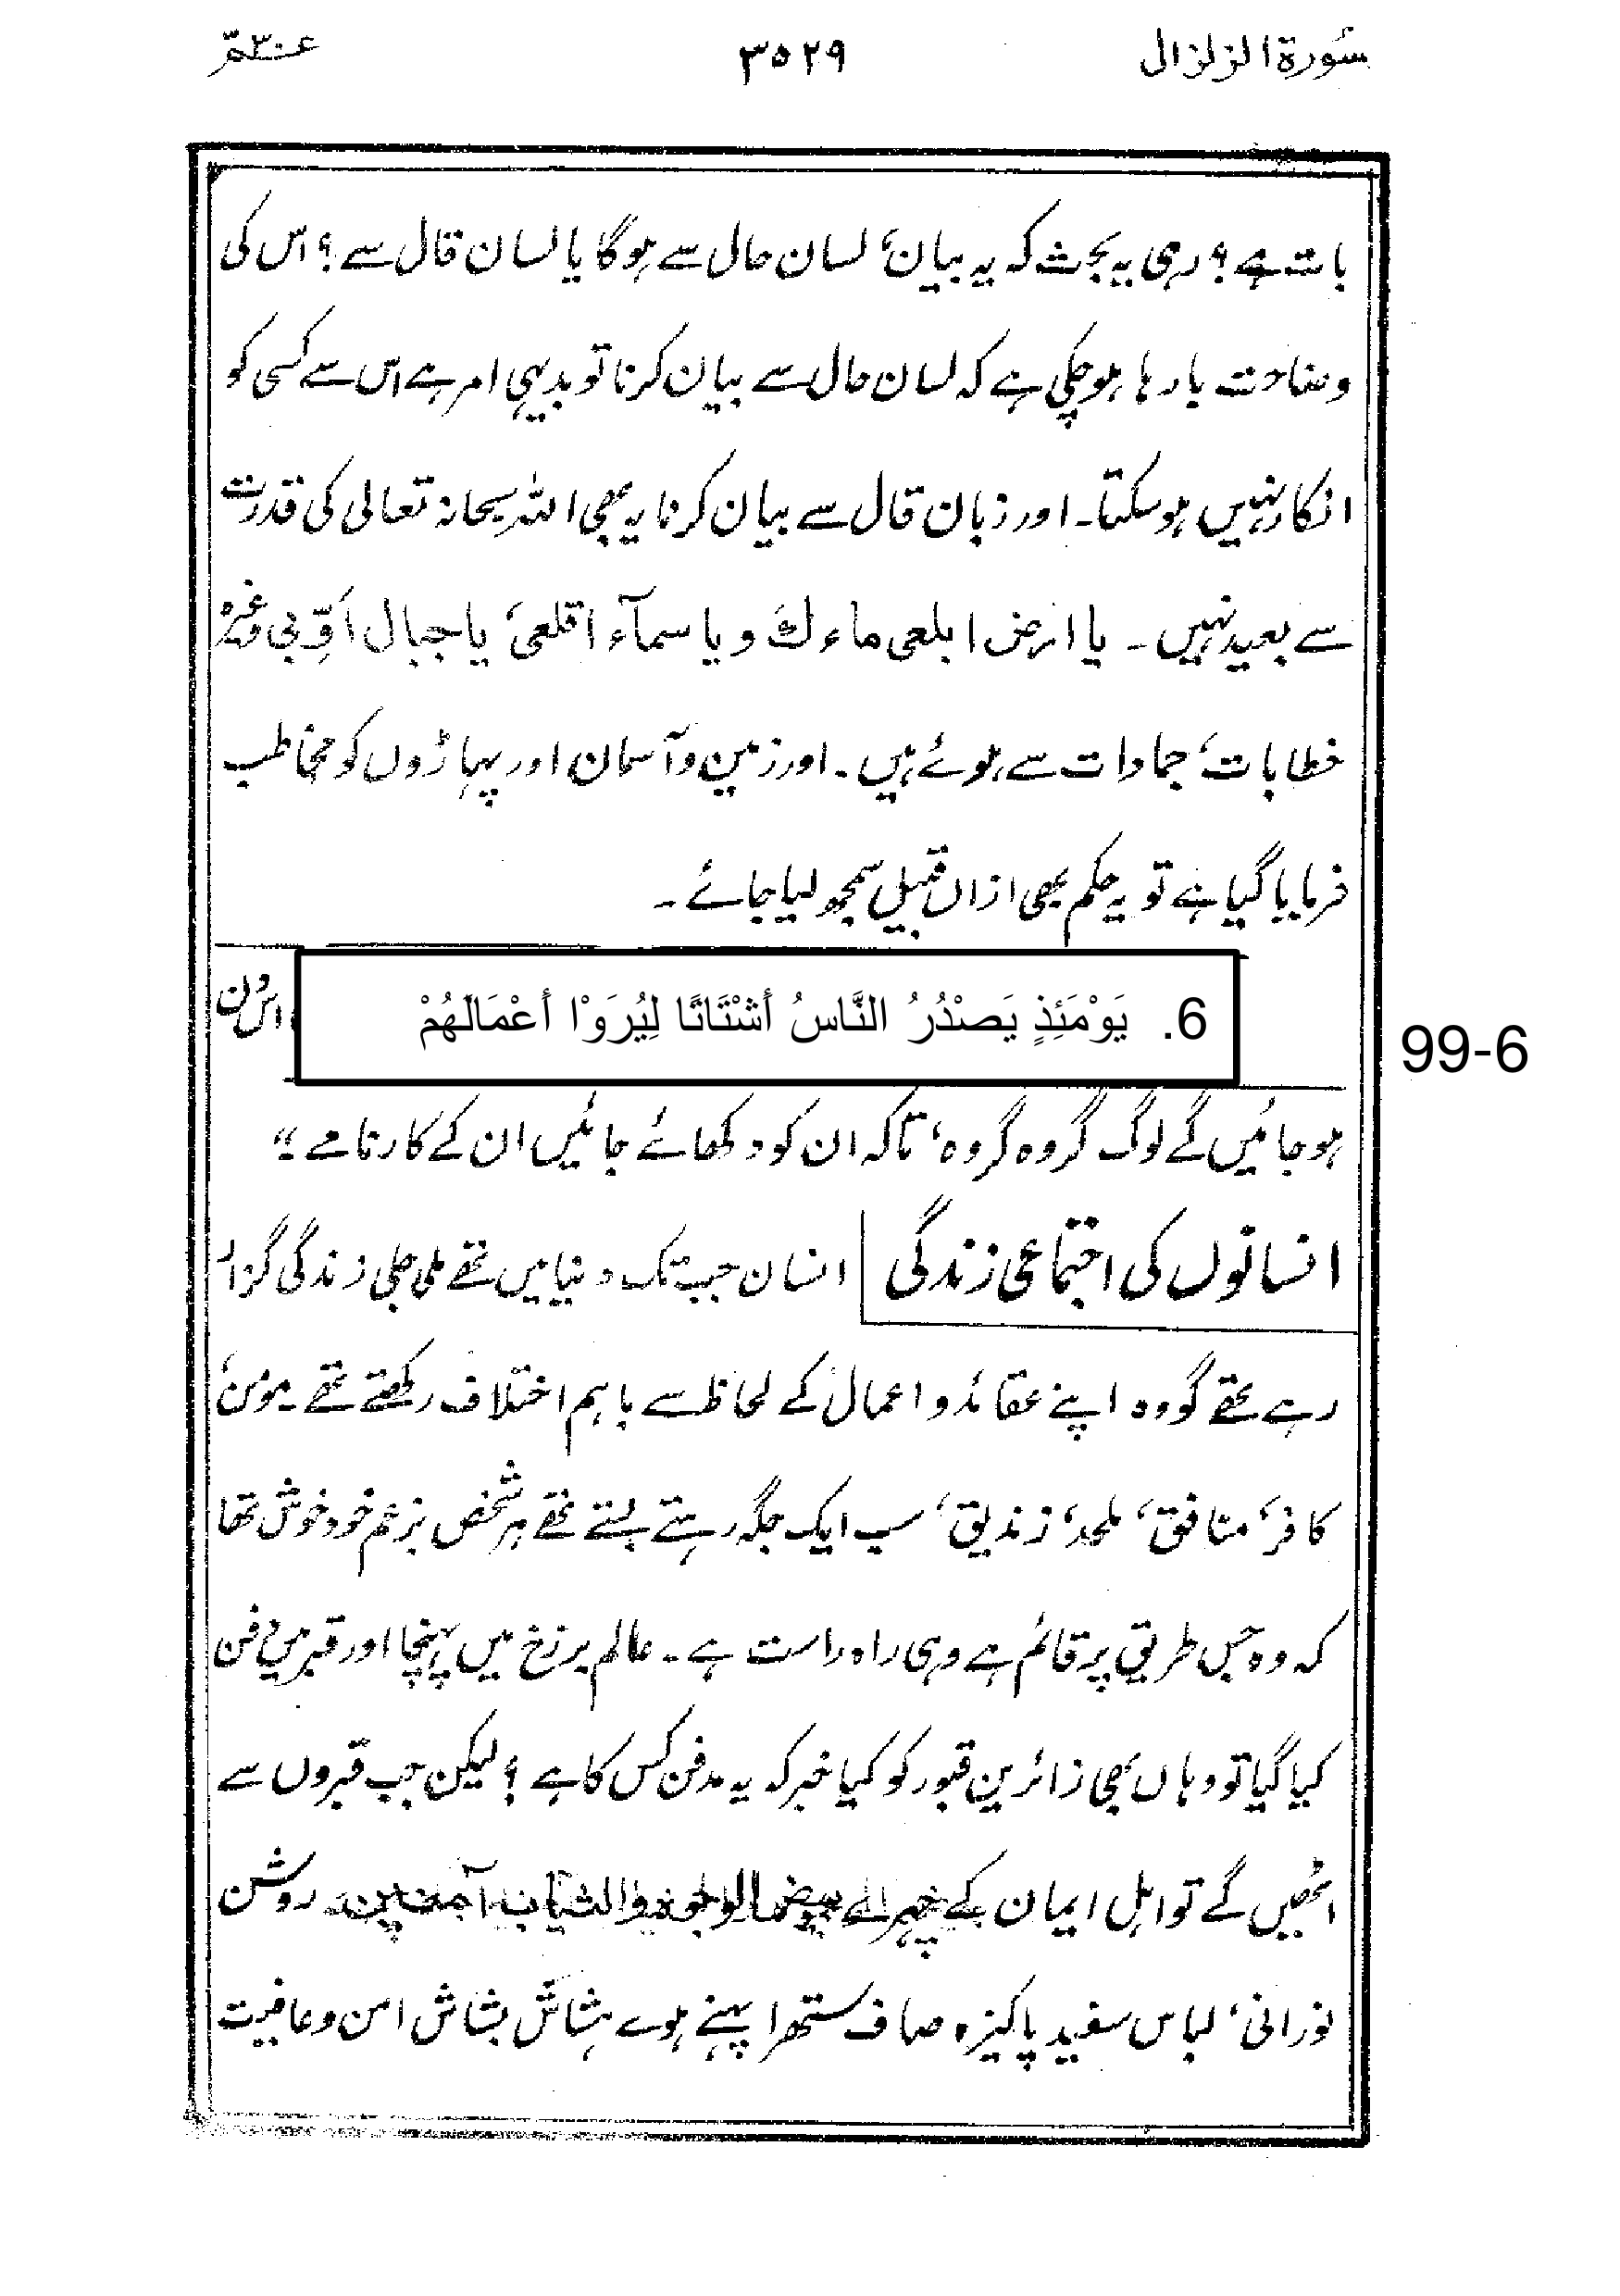 سُورۃ الزلزال ۳۵۲۹ عـــم ۳۰
بات ہے؟ رہی یہ بحث کہ یہ بیان، لسان حال سے ہوگا یا لسان قال سے؟ اس کی
وضاحت بارہا ہوچکی ہے کہ لسان حال سے بیان کرنا تو بدیہی امر ہے اس سے کسی کو
انکار نہیں ہوسکتا۔ اور زبان قال سے بیان کرنا یہ بھی اللہ سبحانہ تعالی کی قدرت
سے بعید نہیں۔ یا ارض ابلعی ماءك و یا سمآء اقلعی، یا جبال اَوِّبی وغیرہ
خطابات، جمادات سے ہوئے ہیں۔ اور زمین وآسمان اور پہاڑوں کو مخاطب
فرمایا گیا ہے تو یہ حکم بھی ازاں قبیل سمجھ لیا جائے۔
6. يَوْمَئِذٍ يَصْدُرُ النَّاسُ أَشْتَاتًا لِيُرَوْا أَعْمَالَهُمْ اس دن
99-6
ہوجائیں گے لوگ گروہ گروہ، تاکہ ان کو دکھائے جائیں ان کے کارنامے۔"
انسانوں کی اجتماعی زندگی انسان جب تک دنیا میں تھے ملی جلی زندگی گزار
رہے تھے گو وہ اپنے عقائد و اعمال کے لحاظ سے باہم اختلاف رکھتے تھے۔ مومن،
کافر، منافق، ملحد، زندیق، سب ایک جگہ رہتے بستے تھے ہر شخص بزعم خود خوش تھا
کہ وہ جس طریق پر قائم ہے وہی راہ راست ہے۔ عالم برزخ میں پہنچا اور قبر میں دفن
کیا گیا تو وہاں بھی زائرین قبور کو کیا خبر کہ یہ مدفن کس کا ہے؟ لیکن جب قبروں سے
اٹھیں گے تو اہل ایمان کے چہرے بیض الوجوہ والثیاب آمنین۔ روشن
نورانی، لباس سفید پاکیزہ صاف ستھرا پہنے ہوے ہشاش بشاش امن و عافیت